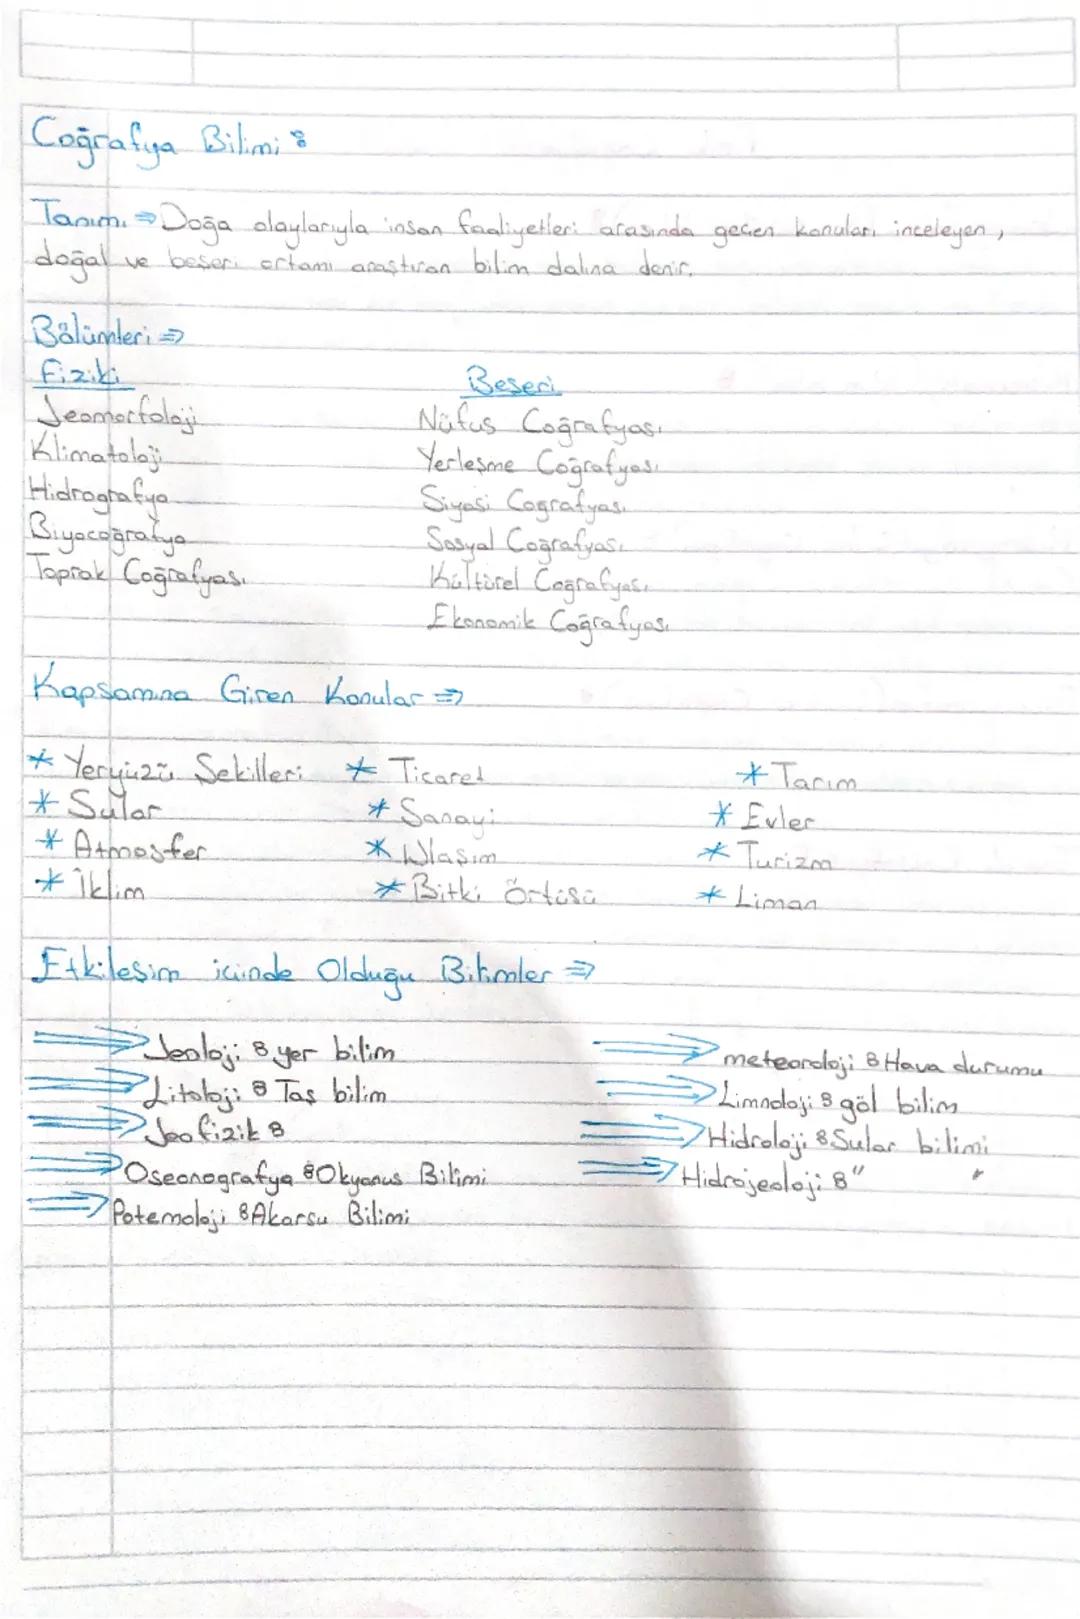 Coğrafya Bilimi :
Tanımı ⇒ Doğa olaylarıyla insan faaliyetleri arasında geçen konuları inceleyen,
doğal ve beşeri ortamı araştıran bilim dalına denir.
Bölümleri ⇒
Fiziki
Jeomorfoloji
Klimatoloji
Hidrografya
Biyocoğrafya
Toprak Coğrafyası
Beşeri
Nüfus Coğrafyası
Yerleşme Coğrafyası
Siyasi Coğrafyası
Sosyal Coğrafyası
Kültürel Coğrafyası
Ekonomik Coğrafyası
Kapsamına Giren Konular ⇒
* Yeryüzü Şekilleri * Ticaret * Tarım
* Sular * Sanayi * Evler
* Atmosfer * Ulaşım * Turizm
* İklim * Bitki Örtüsü * Liman
Etkileşim içinde Olduğu Bilimler ⇒
⇒ Jeoloji : yer bilim
⇒ Litoloji : Taş bilim
⇒ Jeofizik :
⇒ Oseonografya : Okyanus Bilimi
⇒ Potemoloji : Akarsu Bilimi
⇒ meteoroloji : Hava durumu
⇒ Limnoloji : göl bilim
⇒ Hidroloji : Sular bilimi
⇒ Hidrojeoloji : " "